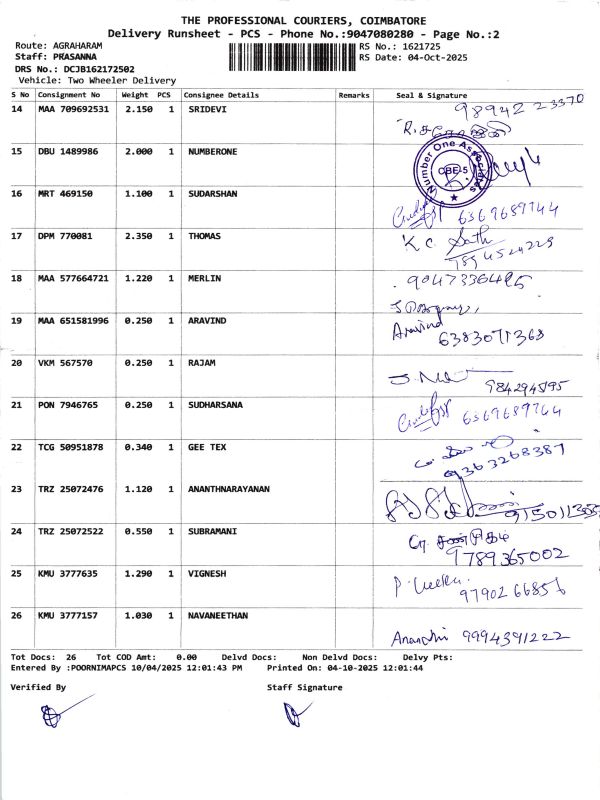 THE PROFESSIONAL COURIERS, COIMBATORE
Delivery Runsheet - PCS - Phone No.:9047080280 - Page No.:2
Route: AGRAHARAM RS No.: 1621725
Staff: PRASANNA RS Date: 04-Oct-2025
DRS No.: DCJB162172502
Vehicle: Two Wheeler Delivery
S No Consignment No Weight PCS Consignee Details Remarks Seal & Signature
14 MAA 709692531 2.150 1 SRIDEVI 98942 23370
15 DBU 1489986 2.000 1 NUMBERONE Number One Associates CBE-5
16 MRT 469150 1.100 1 SUDARSHAN 6369689744
17 DPM 770081 2.350 1 THOMAS K C
18 MAA 577664721 1.220 1 MERLIN
19 MAA 651581996 0.250 1 ARAVIND Aravind 6383071368
20 VKM 567570 0.250 1 RAJAM 9842945195
21 PON 7946765 0.250 1 SUDHARSANA 6369689744
22 TCG 50951878 0.340 1 GEE TEX 9363268387
23 TRZ 25072476 1.120 1 ANANTHNARAYANAN
24 TRZ 25072522 0.550 1 SUBRAMANI 9789365002
25 KMU 3777635 1.290 1 VIGNESH 9790266856
26 KMU 3777157 1.030 1 NAVANEETHAN Ananthi 9994391222
Tot Docs: 26 Tot COD Amt: 0.00 Delvd Docs: Non Delvd Docs: Delvy Pts:
Entered By :POORNIMAPCS 10/04/2025 12:01:43 PM Printed On: 04-10-2025 12:01:44
Verified By Staff Signature